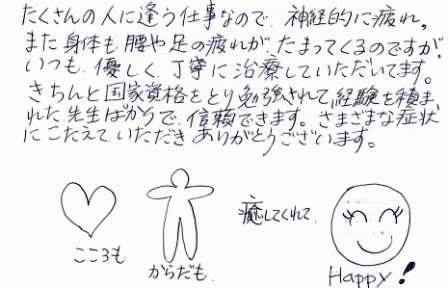 たくさんの人に逢う仕事なので、神経的に疲れ、
また身体も腰や足の疲れが、たまってくるのですが、
いつも、優しく、丁寧に治療していただいてます。
きちんと国家資格をとり勉強されて、経験を積ま
れた先生ばかりで、信頼できます。さまざまな症状
にこたえていただきありがとうございます。
癒してくれて、
こころも
からだも
Happy!